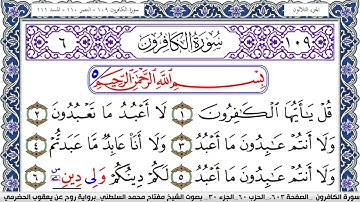 سورة الكافرون ١٠٩ - النصر ١١٠ - المسد ١١١
الجزء الثلاثون
١٠٩ سُورَةُ الكَافِرُونَ ٦
بِسْمِ اللَّهِ الرَّحْمَٰنِ الرَّحِيمِ
قُلْ يَٰٓأَيُّهَا ٱلْكَٰفِرُونَ ١ لَآ أَعْبُدُ مَا تَعْبُدُونَ ٢
وَلَآ أَنتُمْ عَٰبِدُونَ مَآ أَعْبُدُ ٣ وَلَآ أَنَا۠ عَابِدٌ مَّا عَبَدتُّمْ ٤
وَلَآ أَنتُمْ عَٰبِدُونَ مَآ أَعْبُدُ ٥ لَكُمْ دِينُكُمْ وَلِى دِينِ ٦
سورة الكافرون . الصفحة ٦٠٣ . الحزب ٦٠ . الجزء ٣٠ . بصوت الشيخ مفتاح محمد السلطني . برواية روح عن يعقوب الحضرمي